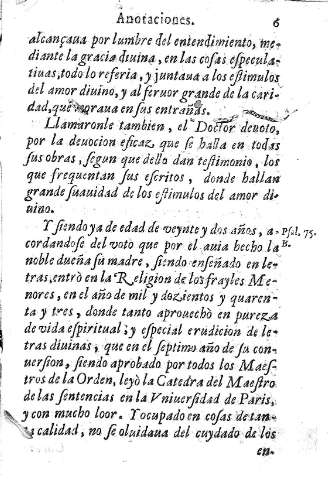 Anotaciones. 6
alcançaua por lumbre del entendimiento, me-
diante la gracia diuina, en las cosas especula-
tiuas, todo lo referia, y juntaua a los estimulos
del amor diuino, y al feruor grande de la cari-
dad, que moraua en sus entrañas.
Llamaronle tambien, el Doctor deuoto,
por la deuocion eficaz que se halla en todas
sus obras, segun que dello dan testimonio, los
que frequentan sus escritos, donde hallan
grande suauidad de los estimulos del amor di-
uino.
Y siendo ya de edad de veynte y dos años, a-
Psal. 75.
cordandose del voto que por el auia hecho la
B.
noble dueña su madre, siendo enseñado en le-
tras, entrò en la Religion de los frayles Me-
nores, en el año de mil y dozientos y quaren-
ta y tres, donde tanto aprouechò en pureza
de vida espiritual, y especial erudicion de le-
tras diuinas, que en el septimo año de su con-
uersion, siendo aprobado por todos los Maes-
tros de la Orden, leyò la Catedra del Maestro
de las sentencias en la Vniuersidad de Paris,
y con mucho loor. Y ocupado en cosas de tan-
ta calidad, no se oluidaua del cuydado de los
en-